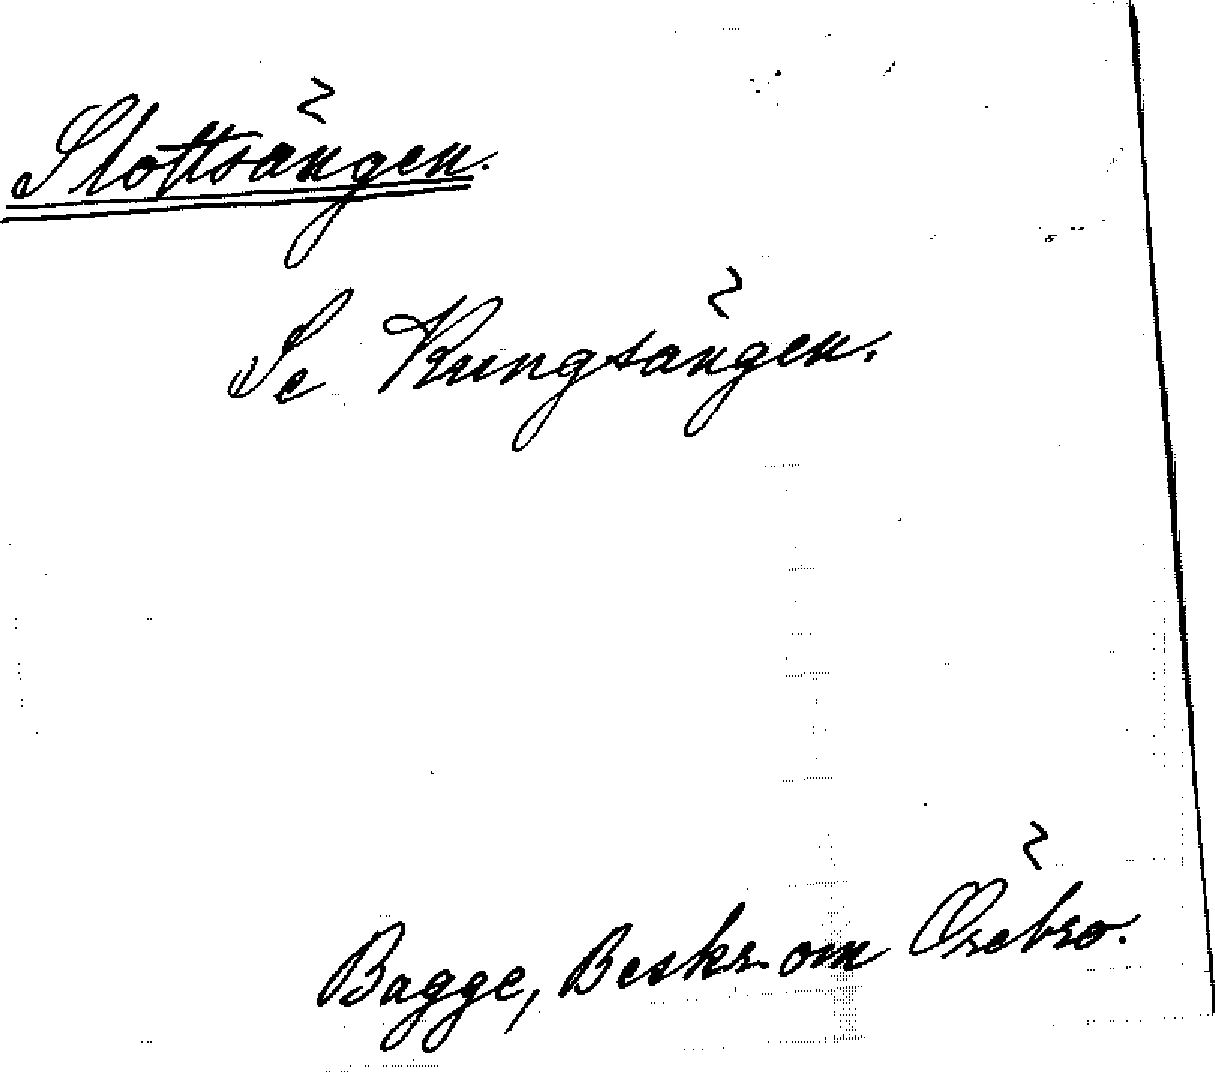 Slottsängen.
Se Kungsängen.
Bagge, Beskr. om Örebro.